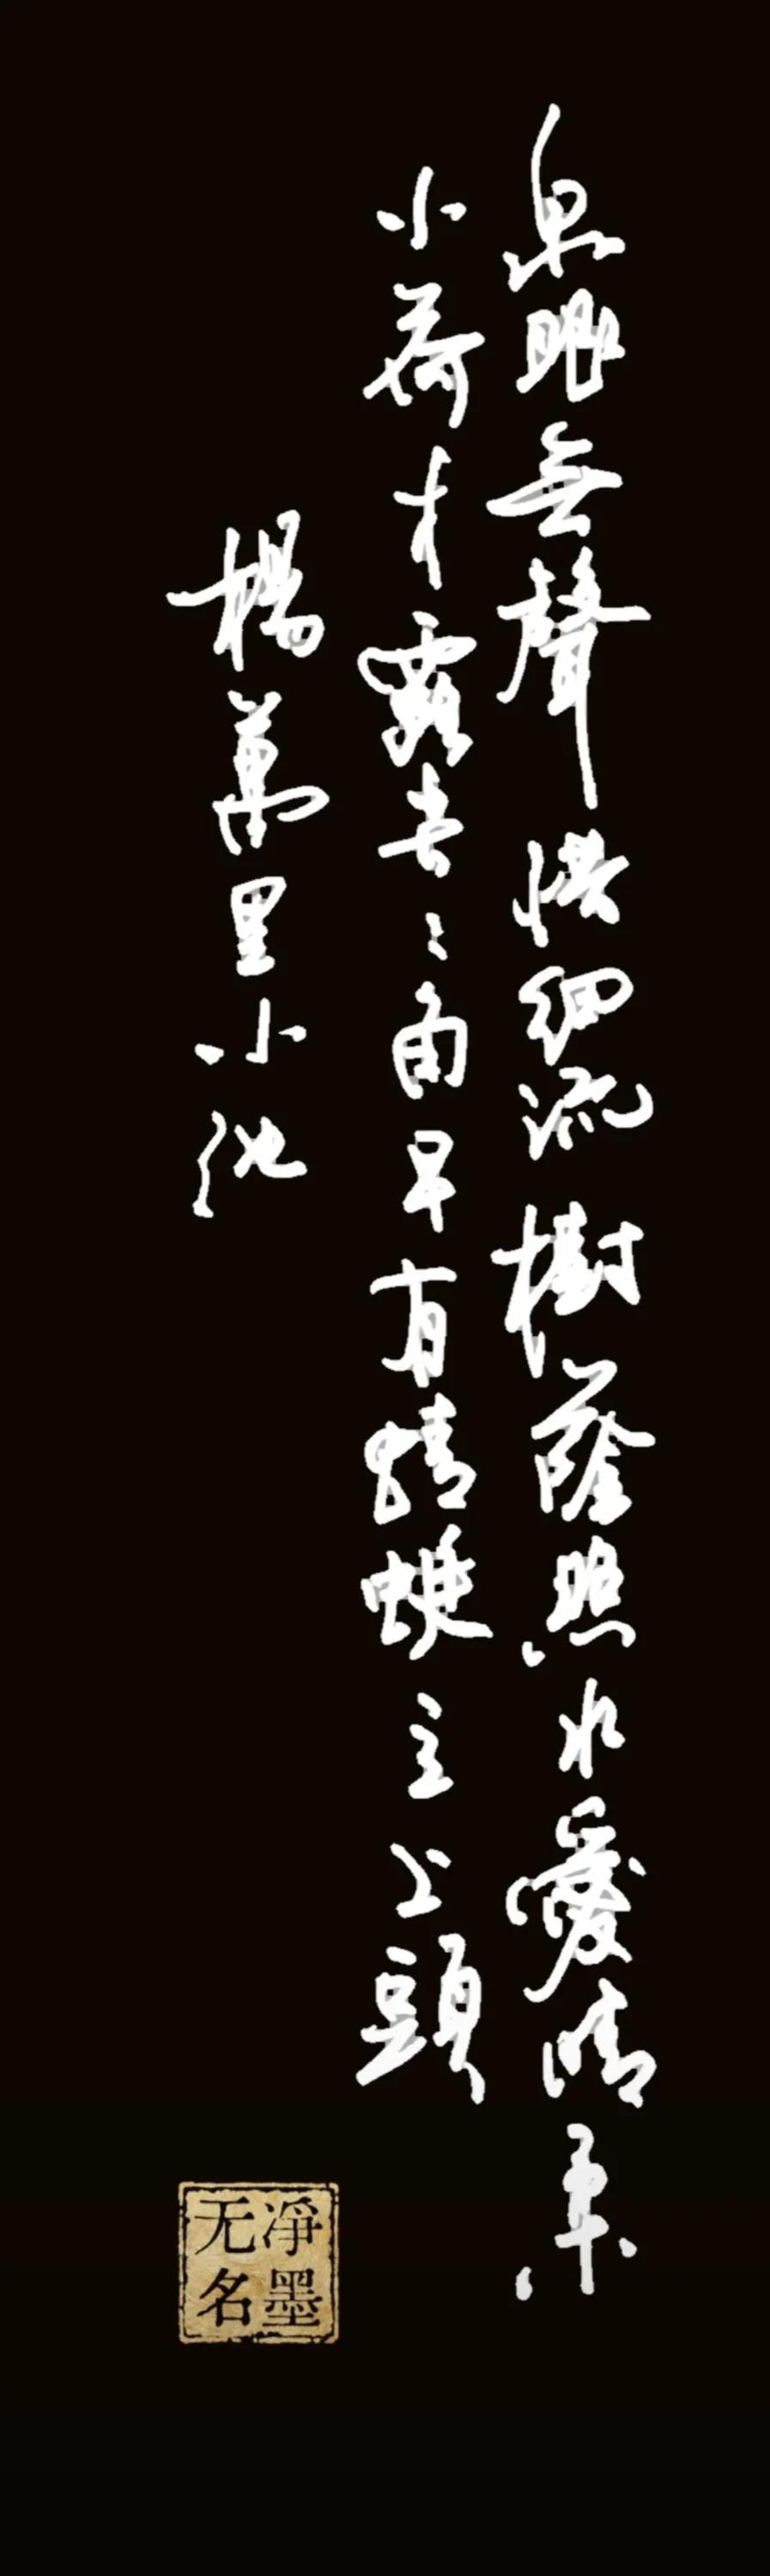 泉眼無聲惜細流樹蔭照水愛晴柔
小荷才露尖々角早有蜻蜓立上頭
楊萬里小池
凈墨
无名